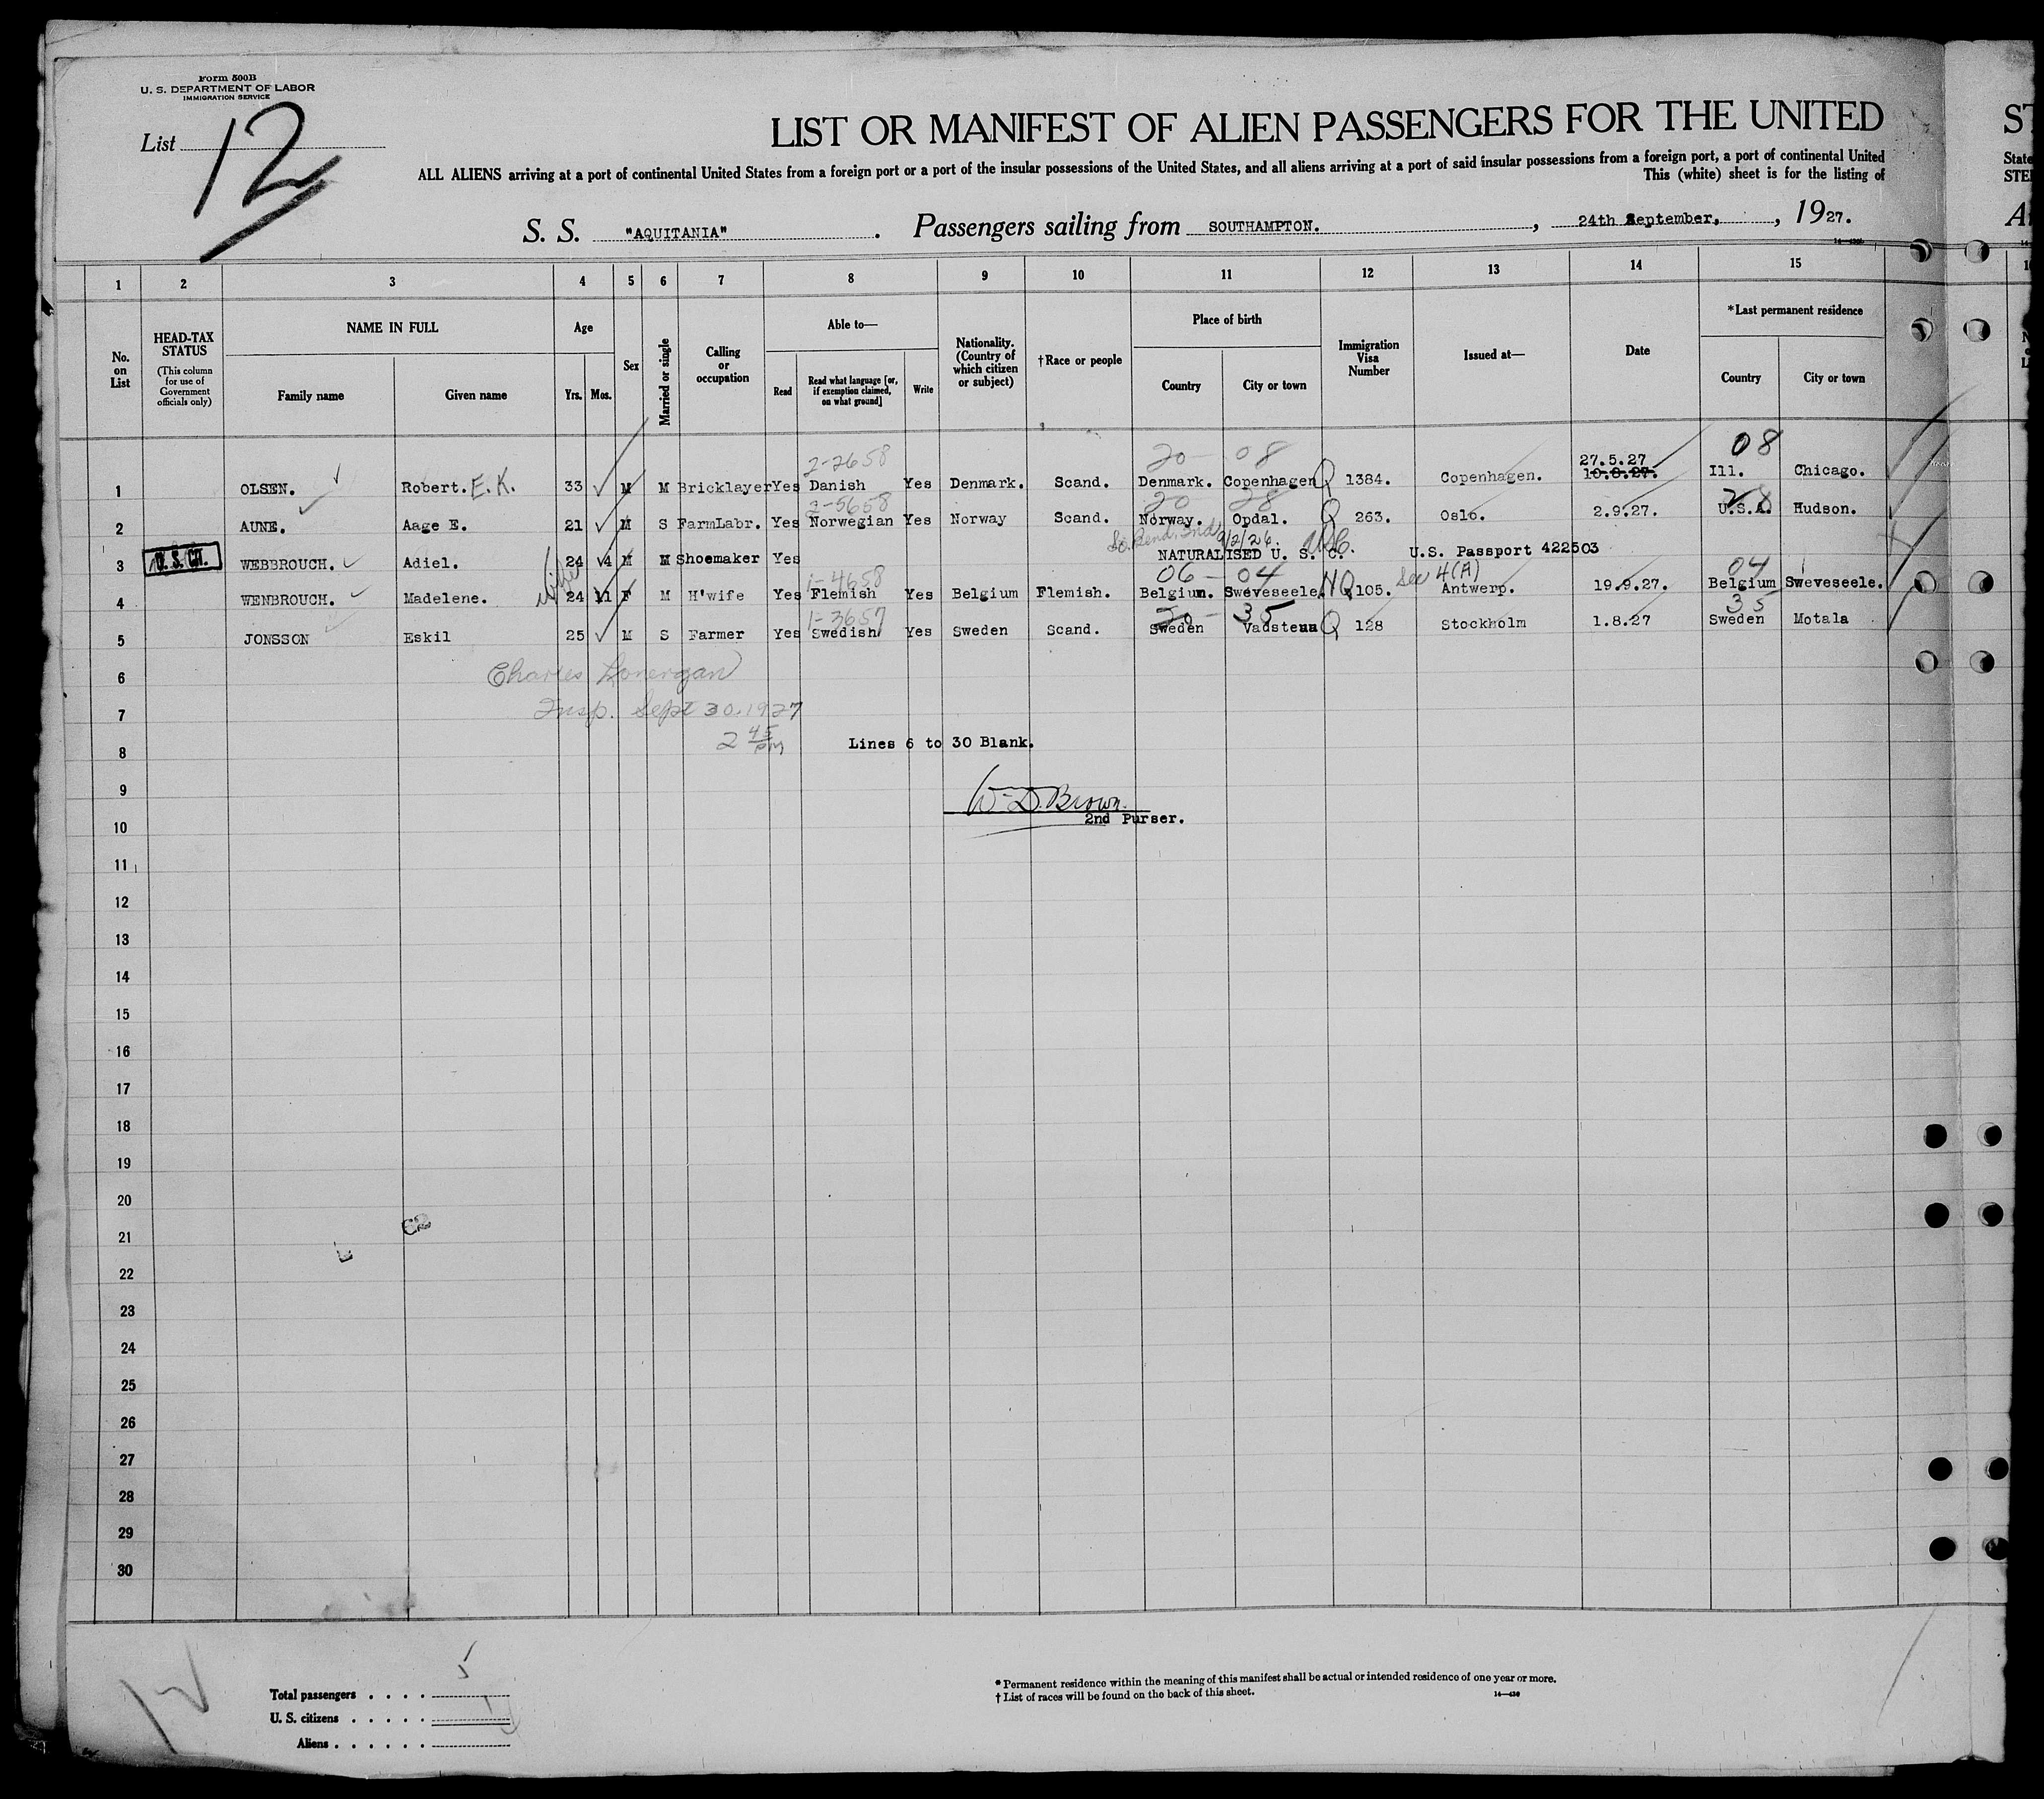 Form 500B
U. S. DEPARTMENT OF LABOR
IMMIGRATION SERVICE
List 12
LIST OR MANIFEST OF ALIEN PASSENGERS FOR THE UNITED ST
ALL ALIENS arriving at a port of continental United States from a foreign port or a port of the insular possessions of the United States, and all aliens arriving at a port of said insular possessions from a foreign port, a port of continental United State
This (white) sheet is for the listing of STE
S. S. "AQUITANIA". Passengers sailing from SOUTHAMPTON. , 24th September, , 1927. A
1 2 3 4 5 6 7 8 9 10 11 12 13 14 15
No. on List
HEAD-TAX STATUS
(This column for use of Government officials only)
NAME IN FULL
Family name
Given name
Age
Yrs. Mos.
Sex
Married or single
Calling or occupation
Able to—
Read
Read what language [or, if exemption claimed, on what ground]
Write
Nationality. (Country of which citizen or subject)
†Race or people
Place of birth
Country
City or town
Immigration Visa Number
Issued at—
Date
*Last permanent residence
Country
City or town
2-2658 20 — 08 27.5.27 08
1 OLSEN. Robert. E.K. 33 M M Bricklayer Yes Danish Yes Denmark. Scand. Denmark. Copenhagen Q 1384. Copenhagen. 10.8.27. Ill. Chicago.
2-5658 20 28 28
2 AUNE. Aage E. 21 M S FarmLabr. Yes Norwegian Yes Norway Scand. Norway. Opdal. Q 263. Oslo. 2.9.27. U.S.A. Hudson.
So. Bend. Ind 9/2/26. USC
3 U. S. CIT. WEBBROUCH. Adiel. 24 4 M M Shoemaker Yes NATURALISED U. S. C. U.S. Passport 422503
Wife 1-4658 06 — 04 Sec 4(A) 04
4 WENBROUCH. Madelene. 24 11 F M H'wife Yes Flemish Yes Belgium Flemish. Belgium. Sweveseele. NQ 105. Antwerp. 19.9.27. Belgium Sweveseele.
1-3657 20 — 35 35
5 JONSSON Eskil 25 M S Farmer Yes Swedish Yes Sweden Scand. Sweden Vadstena Q 128 Stockholm 1.8.27 Sweden Motala
6 Charles Lonergan
7 Insp. Sept 30. 1927
8 2 45 pm Lines 6 to 30 Blank.
9 W. D. Brown.
10 2nd Purser.
11
12
13
14
15
16
17
18
19
20
21
22
23
24
25
26
27
28
29
30
12
Total passengers . . . . 5
U. S. citizens . . . . . 1
Aliens . . . . . .
* Permanent residence within the meaning of this manifest shall be actual or intended residence of one year or more.
† List of races will be found on the back of this sheet.
14—430